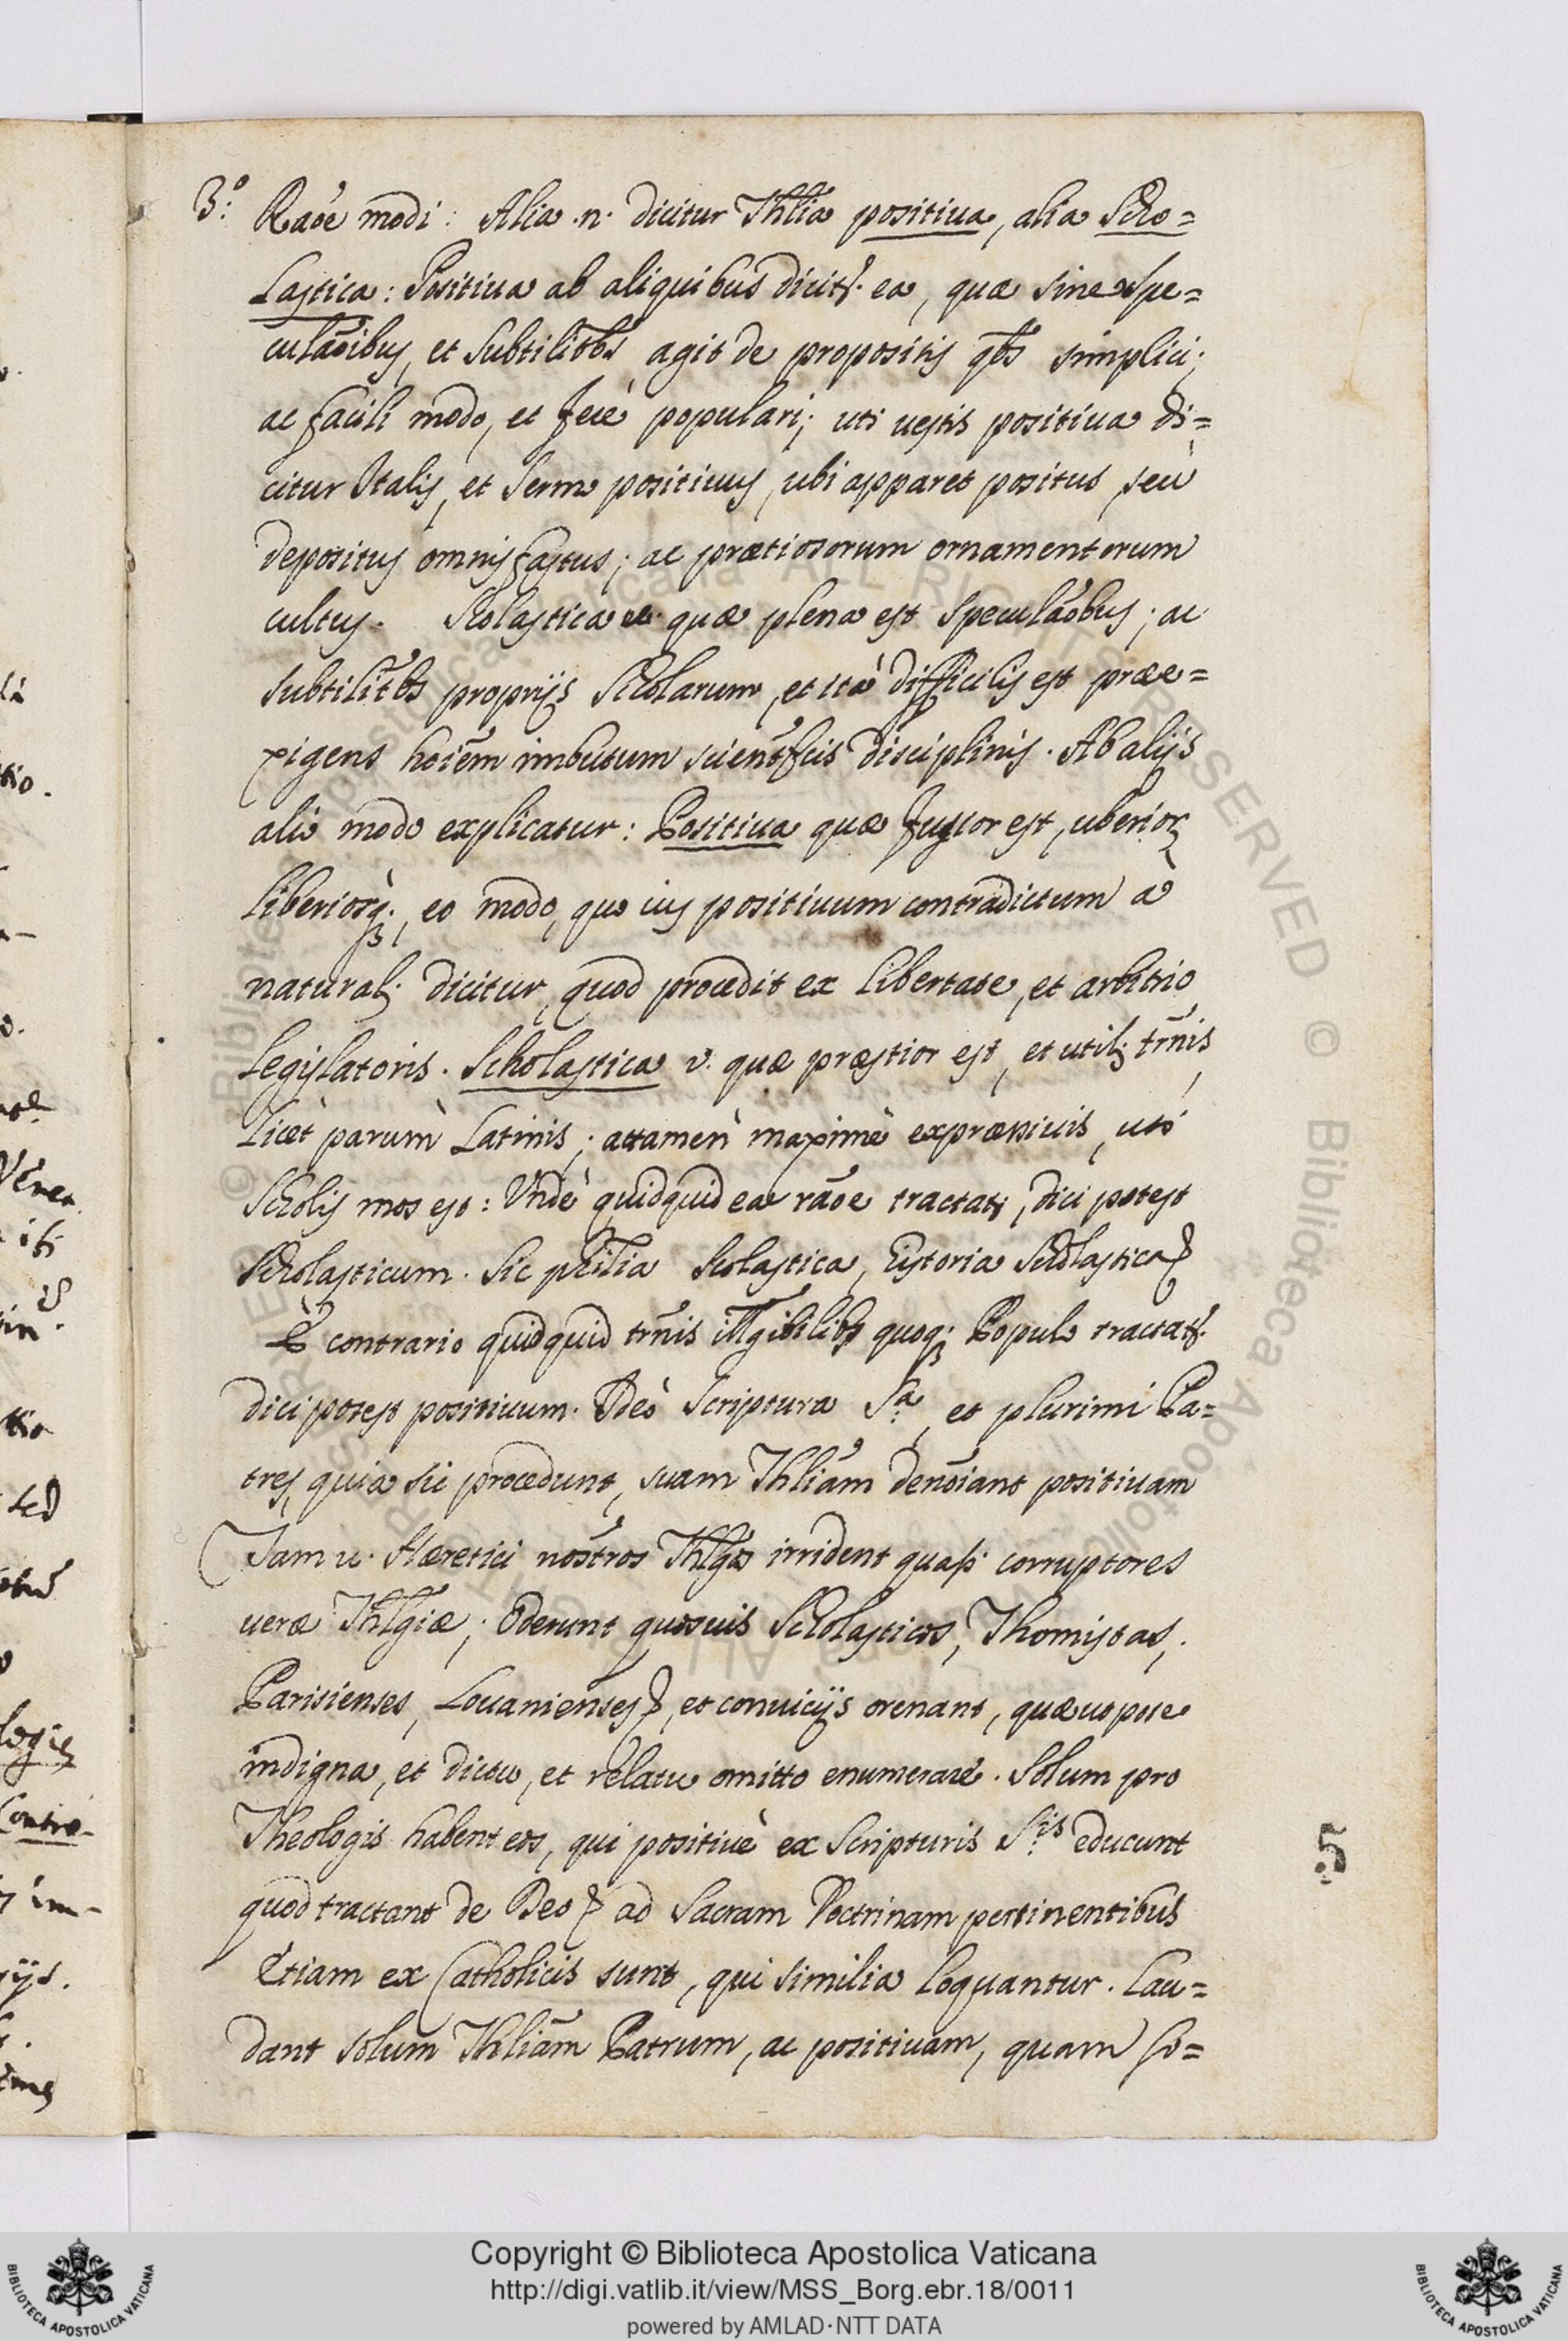 3.º Raõe modi: Alia .n. dicitur Thlia positiua, alia Scho=
lastica: Positiua ab aliquibus dicitr. ea, quæ sine spe=
culaõibus, et subtilitbs agit de propositis qbs simplici;
ac facili modo, et ferè populari; uti uestis positiua di=
citur Italis, et sermo positiuus, ubi apparet positus, seù
depositus omnis fastus; ac prætiosorum ornamentorum
cultus. Scolastica u. quæ plena est speculaõbus; ac
subtilitbs proprijs Scholarum, et ità difficilis est præe=
xigens hoiem imbutum scientfcis disciplinis. Ab alijs
alio modo explicatur: Positiua quæ fusior est, uberior,
liberiorq;, eo modo, quo ius positiuum contradictum à
naturali dicitur, quod procedit ex libertate, et arbitrio
legislatoris. Scholastica v. quæ præstior est, et utilr trnis,
licèt parùm Latinis; attamèn maximè expræssiuis, uti
Scholis mos est: Vndè quidquid ea raõe tractatr, dici potest
Scholasticum. Sic philia Scolastica, Historia Scholastica
È contrario quidquid trnis itllgibilibs quoq; Populo tractatr.
dici potest positiuum. Ideò Scriptura S.ª, et plurimi Pa=
tres, quia sic procedunt, suam Thliam denoiant positiuam
Iam u. Hæretici nostros Thlgos irrident quasi corruptores
ueræ Thlgiæ; Oderunt quosuis Scholasticos, Thomistas,
Parisienses, Louanienses, et conuicijs onerant, quæ
indigna, et dictu, et relatu omitto enumerare. Solum pro
Theologis habent eos, qui positiuè ex Scripturis S.is educunt
quod tractant de Deo ad Sacram Doctrinam pertinentibus
Etiam ex Catholicis sunt, qui similia loquantur. Lau=
dant solum Thliam Patrum, ac positiuam, quam so=
5
Copyright © Biblioteca Apostolica Vaticana
http://digi.vatlib.it/view/MSS_Borg.ebr.18/0011
powered by AMLAD·NTT DATA